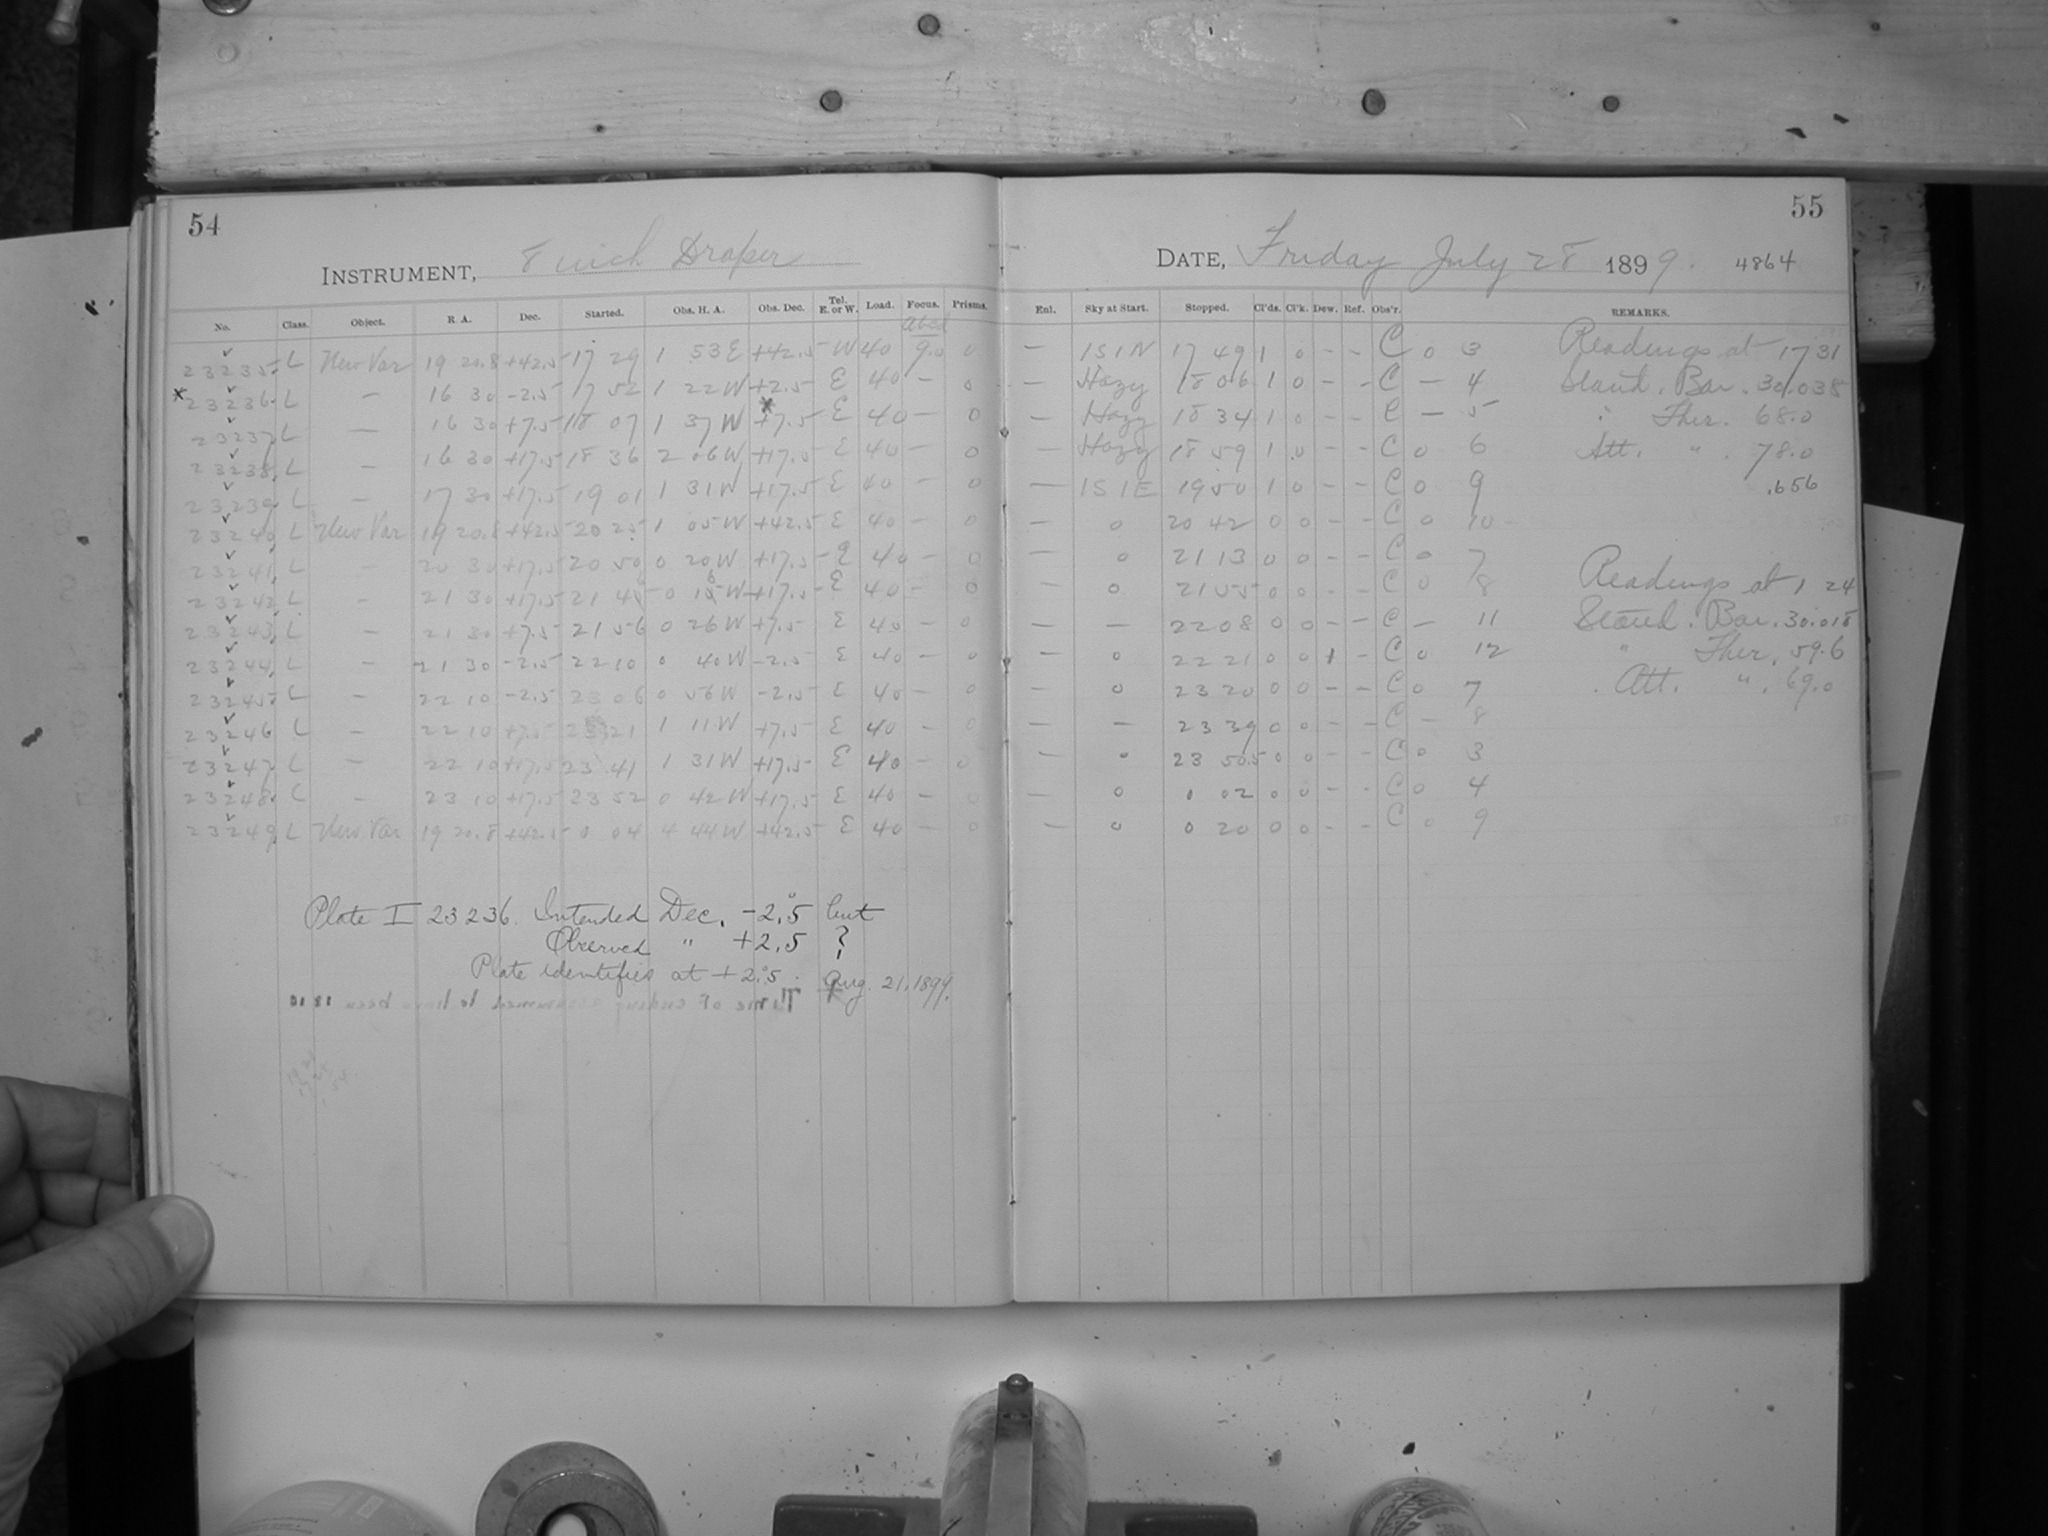 54
INSTRUMENT, 8 inch Draper
No. Class. Object. R. A. Dec. Started. Obs. H. A. Obs. Dec. Tel. E. or W. Load. Focus. Prisms.
abcd
23235 L New Var 19 20.8 +42.5 17 29 1 53 E +42.5 W 40 9.0 0
* 23236 L — 16 30 -2.5 17 52 1 22 W +2.5 E 40 — 0
23237 L — 16 30 +7.5 18 07 1 37 W +7.5 E 40 — 0
23238 L — 16 30 +17.5 18 36 2 06 W +17.5 E 40 — 0
23239 L — 17 30 +17.5 19 01 1 31 W +17.5 E 40 — 0
23240 L New Var 19 20.8 +42.5 20 25 1 05 W +42.5 E 40 — 0
23241 L — 20 30 +17.5 20 50 0 20 W +17.5 E 40 — 0
23242 L — 21 30 +17.5 21 45 0 W +17.5 E 40 — 0
23243 L — 21 30 +7.5 21 56 0 26 W +7.5 E 40 — 0
23244 L — 21 30 -2.5 22 10 0 40 W -2.5 E 40 — 0
23245 L — 22 10 -2.5 23 06 0 56 W -2.5 E 40 — 0
23246 L — 22 10 +7.5 23 21 1 11 W +7.5 E 40 — 0
23247 L — 22 10 +17.5 23 41 1 31 W +17.5 E 40 — 0
23248 L — 23 10 +17.5 23 52 0 42 W +17.5 E 40 — 0
23249 L New Var 19 20.8 +42.5 0 04 4 44 W +42.5 E 40 — 0
Plate I 23236. Intended Dec. -2.°5 but
Observed " +2.5 ?
Plate identified at +2.°5. Aug. 21, 1899.
55
DATE, Friday July 28 1899. 4864
Enl. Sky at Start. Stopped. Cl'ds. Cl'k. Dew. Ref. Obs'r. REMARKS.
— 1S1N 17 49 1 0 - - C 0 3 Readings at 17 31
— Hazy 18 06 1 0 - - C — 4 Stand. Bar. 30.038
— Hazy 18 34 1 0 - - C — 5 " Ther. 68.0
— Hazy 18 59 1 0 - - C 0 6 Att. " . 78.0
— 1S1E 19 50 1 0 - - C 0 9 .656
— 0 20 42 0 0 - - C 0 10
— 0 21 13 0 0 - - C 0 7
— 0 21 55 0 0 - - C 0 8 Readings at 1 24
— — 22 08 0 0 - - C — 11 Stand. Bar. 30.018
— 0 22 21 0 0 1 - C 0 12 " Ther. 59.6
— 0 23 20 0 0 - - C 0 7 Att. " . 69.0
— — 23 39 0 0 - - C — 8
— 0 23 50.5 0 0 - - C 0 3
— 0 0 02 0 0 - - C 0 4
— 0 0 20 0 0 - - C 0 9